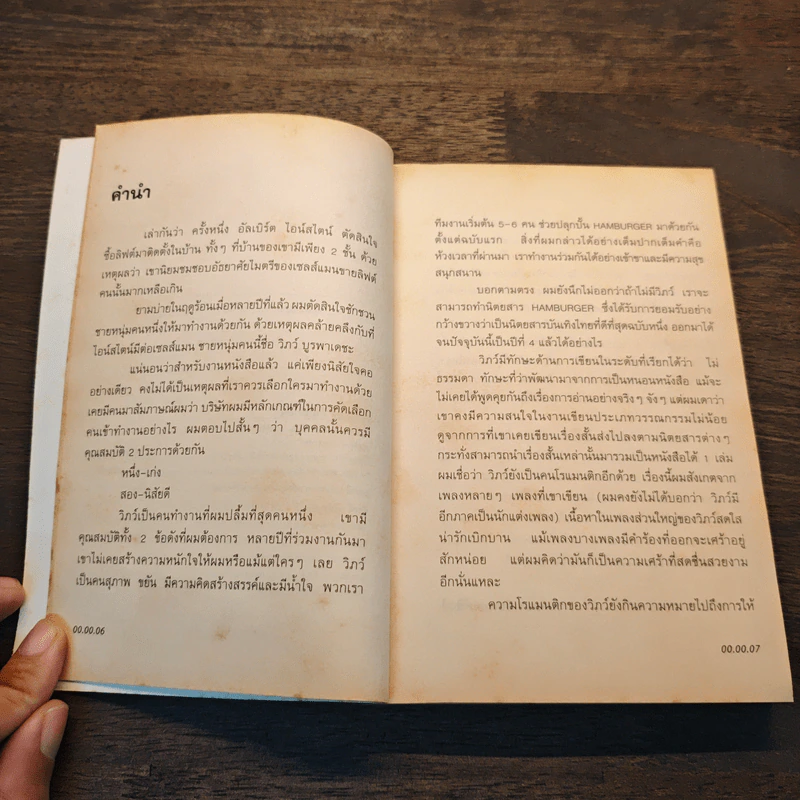 คำนำ
เล่ากันว่า ครั้งหนึ่ง อัลเบิร์ต ไอน์สไตน์ ตัดสินใจ
ซื้อลิฟต์มาติดตั้งในบ้าน ทั้งๆ ที่บ้านของเขามีเพียง 2 ชั้น ด้วย
เหตุผลว่า เขานิยมชมชอบอัธยาศัยไมตรีของเซลส์แมนขายลิฟต์
คนนั้นมากเหลือเกิน
ยามบ่ายในฤดูร้อนเมื่อหลายปีที่แล้ว ผมตัดสินใจชักชวน
ชายหนุ่มคนหนึ่งให้มาทำงานด้วยกัน ด้วยเหตุผลคล้ายคลึงกับที่
ไอน์สไตน์มีต่อเซลส์แมน ชายหนุ่มคนนี้ชื่อ วิภว์ บูรพาเดชะ
แน่นอนว่าสำหรับงานหนังสือแล้ว แค่เพียงนิสัยใจคอ
อย่างเดียว คงไม่ได้เป็นเหตุผลที่เราควรเลือกใครมาทำงานด้วย
เคยมีคนมาสัมภาษณ์ผมว่า บริษัทผมมีหลักเกณฑ์ในการคัดเลือก
คนเข้าทำงานอย่างไร ผมตอบไปสั้นๆ ว่า บุคคลนั้นควรมี
คุณสมบัติ 2 ประการด้วยกัน
หนึ่ง-เก่ง
สอง-นิสัยดี
วิภว์เป็นคนทำงานที่ผมปลื้มที่สุดคนหนึ่ง เขามี
คุณสมบัติทั้ง 2 ข้อดังที่ผมต้องการ หลายปีที่ร่วมงานกันมา
เขาไม่เคยสร้างความหนักใจให้ผมหรือแม้แต่ใครๆ เลย วิภว์
เป็นคนสุภาพ ขยัน มีความคิดสร้างสรรค์และมีน้ำใจ พวกเรา
00.00.06
ทีมงานเริ่มต้น 5-6 คน ช่วยปลุกปั้น HAMBURGER มาด้วยกัน
ตั้งแต่ฉบับแรก สิ่งที่ผมกล่าวได้อย่างเต็มปากเต็มคำคือ
ห้วงเวลาที่ผ่านมา เราทำงานร่วมกันได้อย่างเข้าขาและมีความสุข
สนุกสนาน
บอกตามตรง ผมยังนึกไม่ออกว่าถ้าไม่มีวิภว์ เราจะ
สามารถทำนิตยสาร HAMBURGER ซึ่งได้รับการยอมรับอย่าง
กว้างขวางว่าเป็นนิตยสารบันเทิงไทยที่ดีที่สุดฉบับหนึ่ง ออกมาได้
จนปัจจุบันนี้เป็นปีที่ 4 แล้วได้อย่างไร
วิภว์มีทักษะด้านการเขียนในระดับที่เรียกได้ว่า ไม่
ธรรมดา ทักษะที่ว่าพัฒนามาจากการเป็นหนอนหนังสือ แม้จะ
ไม่เคยได้พูดคุยกันถึงเรื่องการอ่านอย่างจริงๆ จังๆ แต่ผมเดาว่า
เขาคงมีความสนใจในงานเขียนประเภทวรรณกรรมไม่น้อย
ดูจากการที่เขาเคยเขียนเรื่องสั้นส่งไปลงตามนิตยสารต่างๆ
กระทั่งสามารถนำเรื่องสั้นเหล่านั้นมารวมเป็นหนังสือได้ 1 เล่ม
ผมเชื่อว่า วิภว์ยังเป็นคนโรแมนติกอีกด้วย เรื่องนี้ผมสังเกตจาก
เพลงหลายๆ เพลงที่เขาเขียน (ผมคงยังไม่ได้บอกว่า วิภว์มี
อีกภาคเป็นนักแต่งเพลง) เนื้อหาในเพลงส่วนใหญ่ของวิภว์สดใส
น่ารักเบิกบาน แม้เพลงบางเพลงมีคำร้องที่ออกจะเศร้าอยู่
สักหน่อย แต่ผมคิดว่ามันก็เป็นความเศร้าที่สดชื่นสวยงาม
อีกนั่นแหละ
ความโรแมนติกของวิภว์ยังกินความหมายไปถึงการให้
00.00.07